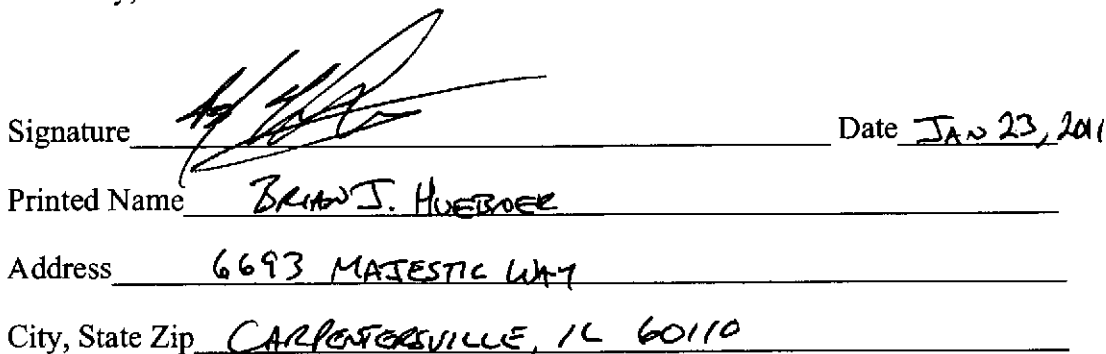 y,
Signature Date JAN 23, 2011
Printed Name BRIAN J. HUEBNER
Address 6693 MAJESTIC WAY
City, State Zip CARPENTERSVILLE, IL 60110